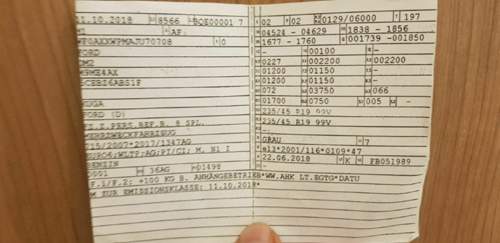 11.10.2018 8566 BQE00001 7
M2 AF.
WF0AXXWPMAJU70708 0
FORD
DM2
KUGA
FORD (D)
FZ.Z.PERS.BEF.B. 8 SPL.
MEHRZWECKFAHRZEUG
715/2007*2017/1347AG
EURO6;WLTP;AG;PI/CI; M, N1 I
BENZIN
0001 36AG 01498
F.1/F.2; +100 KG B. ANHÄNGEBETRIEB*WW.AHK LT.EGTG*DATU
M ZUR EMISSIONSKLASSE: 11.10.2018*
02 02 0129/06000 197
04524 - 04629 1838 - 1856
1677 - 1760 001739 -001850
- 00100 -
0227 002200 002200
01200 01150 -
01200 01150 -
072 03750 066
01700 0750 005 -
235/45 R19 99V
235/45 R19 99V
GRAU 7
e13*2001/116*0109*47
22.06.2018 K FB051989
-